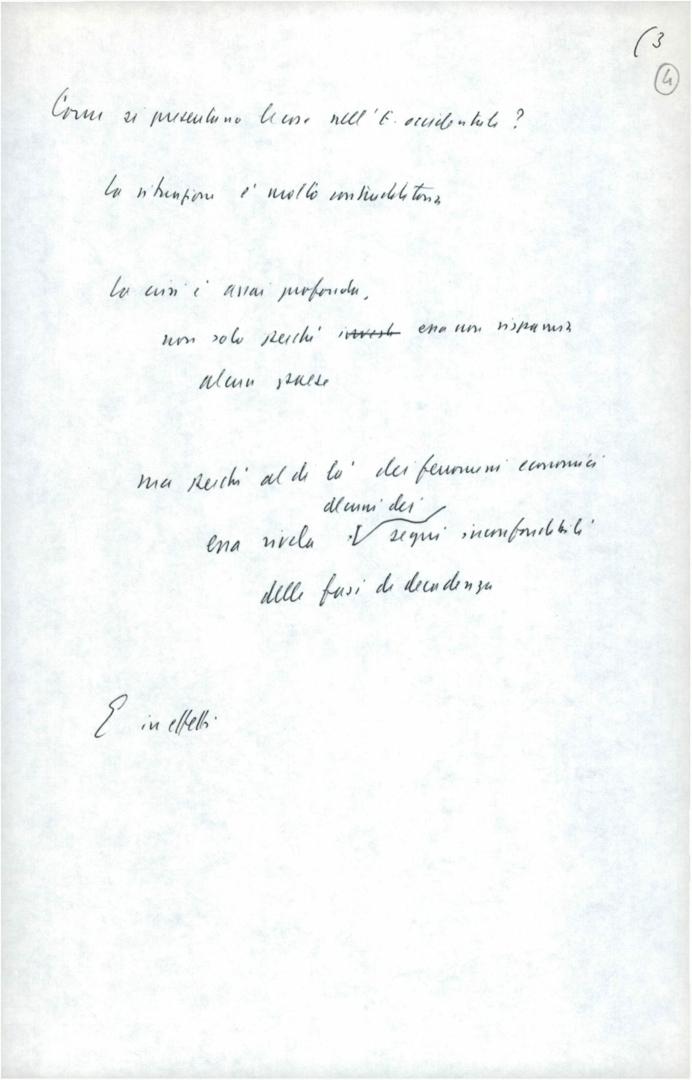 (3
4
Come si presentano le cose nell'E. occidentale?
La situazione è molto contraddittoria
La crisi è assai profonda,
non solo perché invest essa non risparmia
alcun paese
ma perché al di là dei fenomeni economici
alcuni dei
essa rivela i segni inconfondibili
delle fasi di decadenza
E in effetti